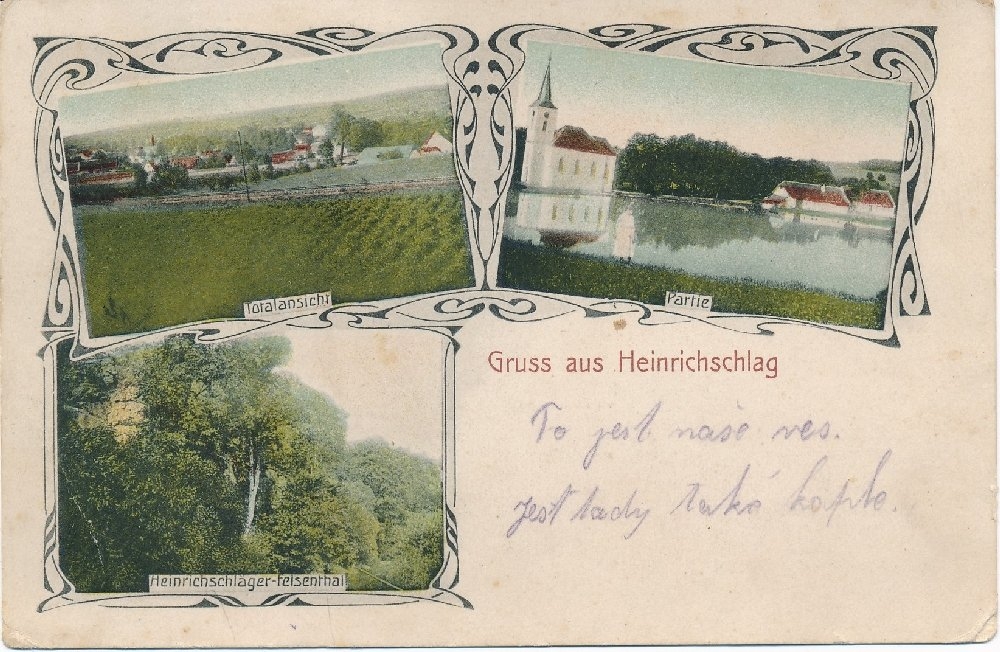 Totalansicht
Partie
Gruss aus Heinrichschlag
To jest naše ves.
jest tady také kaple.
Heinrichschläger-Felsenthal